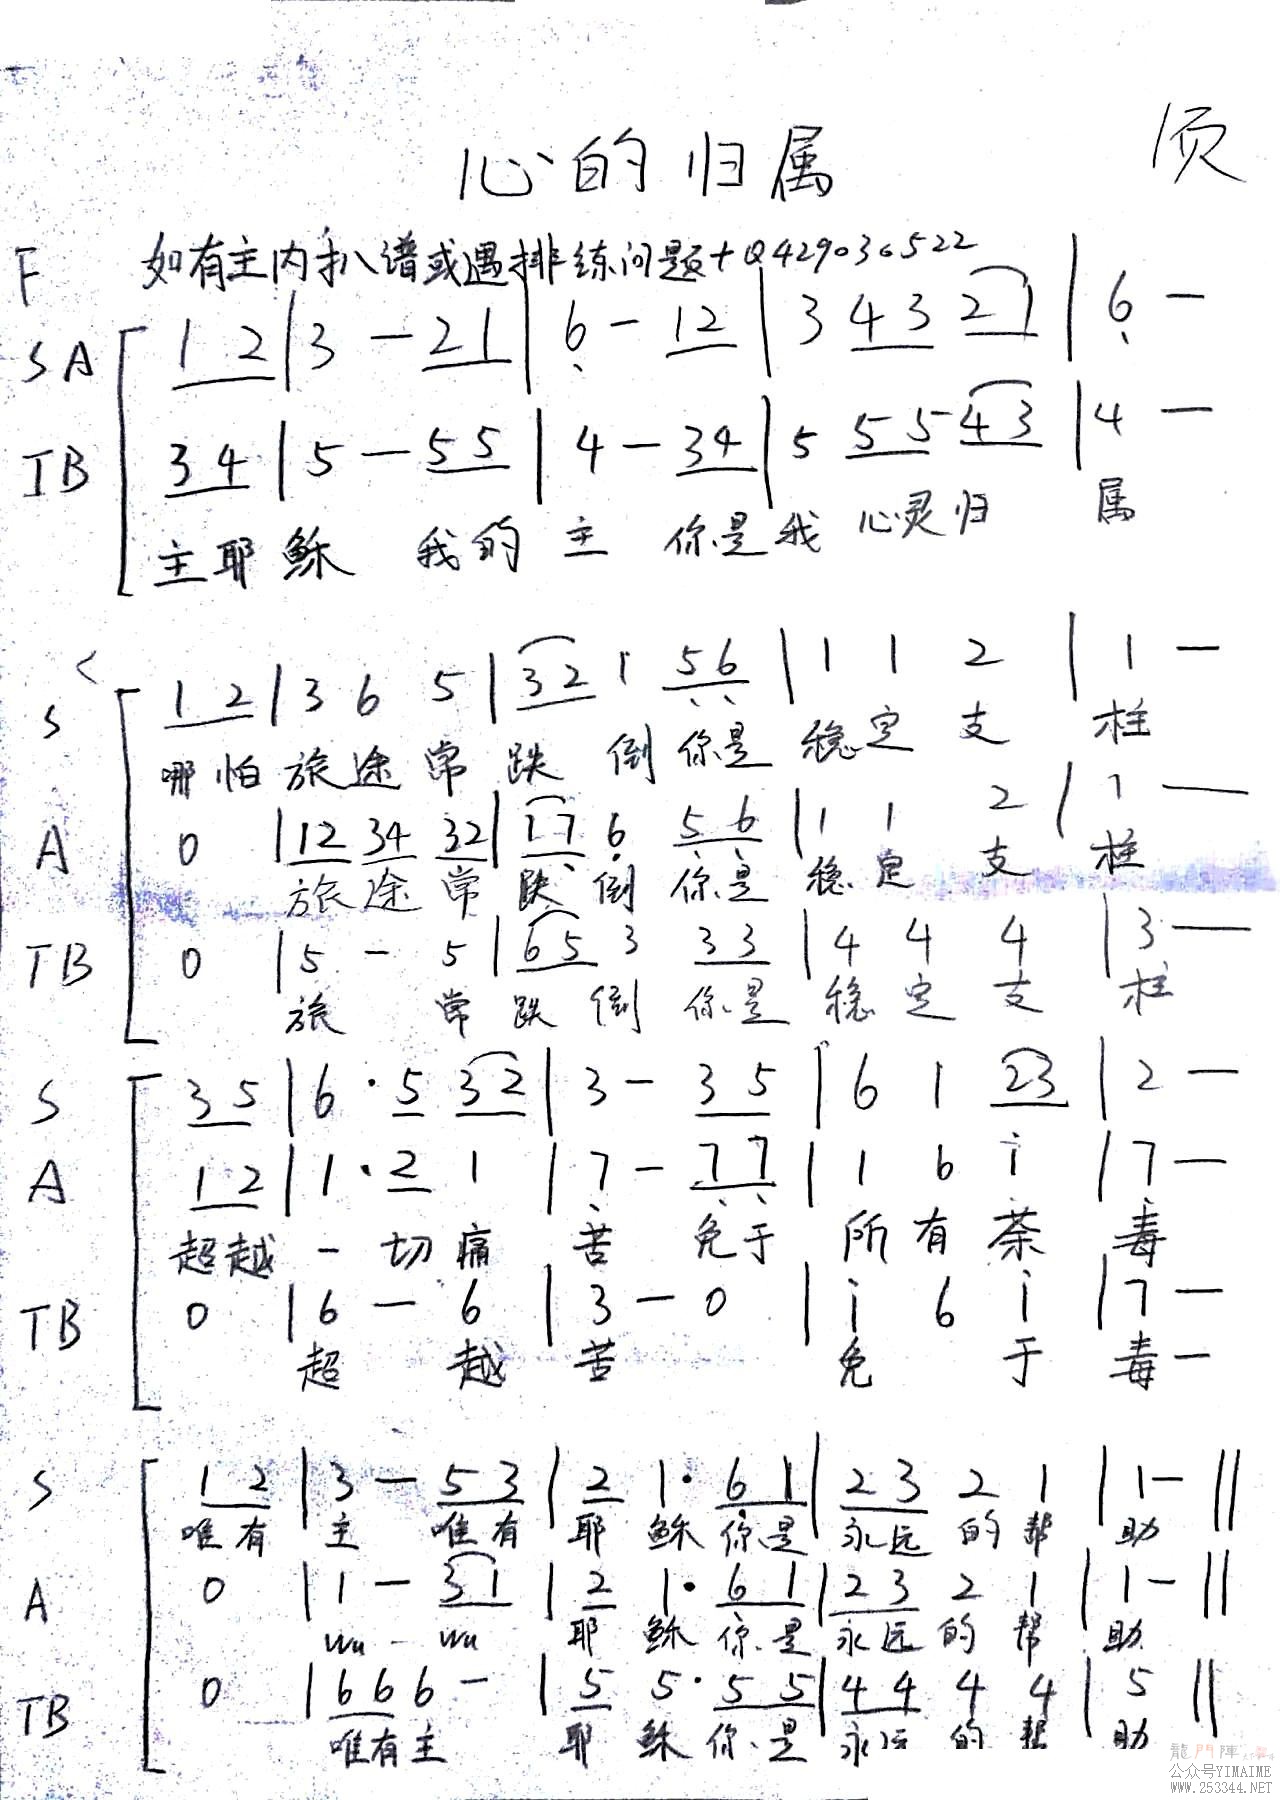 心的归属
1页
F 如有主内扒谱或遇排练问题+Q429036522
SA 1 2 | 3 - 2 1 | 6̣ - 1 2 | 3 4 3 2 1 | 6̣ -
TB 3 4 | 5 - 5 5 | 4 - 3 4 | 5 5 5 4 3 | 4 -
主耶稣 我的主 你是我心灵归属
S 1 2 | 3 6 5 | 3 2 1 5̣ 6̣ | 1 1 2 | 1 -
哪怕旅途常跌倒你是稳定支柱
A 0 | 1 2 3 4 3 2 | 1 7̣ 6̣ 5̣ 6̣ | 1 1 2 | 1 -
旅途常跌倒你是稳定支柱
TB 0 | 5 - 5 | 6 5 3 3 3 | 4 4 4 | 3 -
旅常跌倒你是稳定支柱
S 3 5 | 6 · 5 3 2 | 3 - 3 5 | 6 1 2 3 | 2 -
A 1 2 | 1 · 2 1 | 7̣ - 7̣ 7̣ | 1 6 i | 7 -
超越一切痛苦免于所有荼毒
TB 0 | 6 - 6 | 3 - 0 | i 6 i | 7 -
超越苦免于毒-
S 1 2 | 3 - 5 3 | 2 1 · 6̣ 1 | 2 3 2 1 | 1 - ||
唯有主唯有耶稣你是永远的帮助
A 0 | 1 - 3 1 | 2 1 · 6 1 | 2 3 2 1 | 1 - ||
wu - wu 耶稣你是永远的帮助
TB 0 | 6 6 6 - | 5 5 · 5 5 | 4 4 4 4 | 5 ||
唯有主 耶稣你是永远的帮助
龍門陣
公众号YIMAIME
WWW.253344.NET